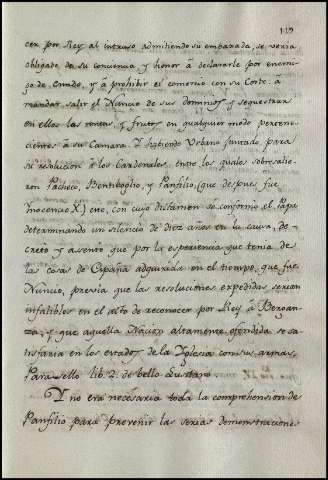 119
cer por Rey al intruso admitiendo su embaxada, se veria
obligado de su conciencia y honor â declararle por enemi-
go de Estado, y â prohibir el comercio con su Corte, â
mandar salir el Nuncio de sus dominios y sequestrar
en ellos las rentas, y frutos en qualquier modo pertene-
cientes â su Camara. Y haviendo Urbano juntado para
su resolucion â los Cardenales, entre los quales sobresalie-
ron Pacheco, Bentiboglio, y Panfilio, (que despues fue
Inocenzio X.) este, con cuyo dictamen se conformò el Papa
determinando un silencio de diez años en la causa, de-
cretò y asentò que por la esperiencia que tenia de
las cosas de España adquirida en el tiempo, que fue
Nuncio, previa que las resoluciones expedidas serian
infalibles en el acto de reconocer por Rey â Bergan-
za, y que aquella Nacion altamente ofendida se sa-
tisfaria en los estados de la Iglesia con sus armas.
Para sello lib. 2. de bello Lusitano
Y no era necesaria toda la comprehension de
Panfilio para prevenir las serias demostraciones